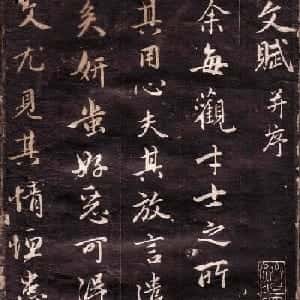 文賦并序
余每觀才士之所
其用心夫其放言遣
矣妍蚩好惡可得
文尤見其情恒患